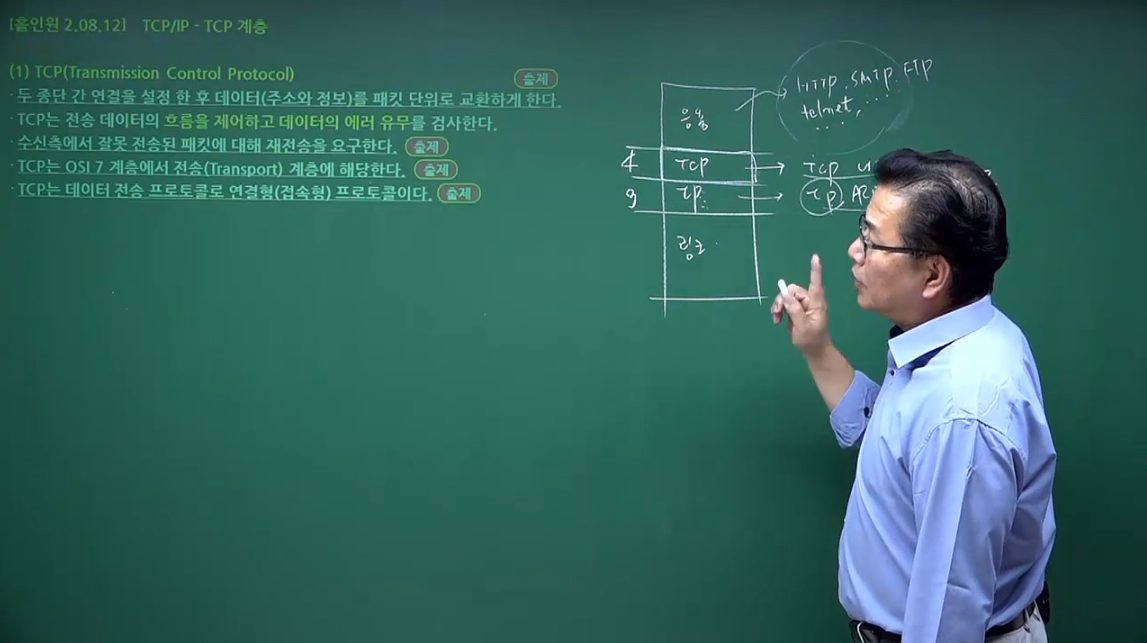 [홀인원 2.08.12] TCP/IP - TCP 계층
(1) TCP(Transmission Control Protocol)
· 두 종단 간 연결을 설정 한 후 데이터(주소와 정보)를 패킷 단위로 교환하게 한다. 출제
· TCP는 전송 데이터의 흐름을 제어하고 데이터의 에러 유무를 검사한다.
· 수신측에서 잘못 전송된 패킷에 대해 재전송을 요구한다. 출제
· TCP는 OSI 7 계층에서 전송(Transport) 계층에 해당한다. 출제
· TCP는 데이터 전송 프로토콜로 연결형(접속형) 프로토콜이다. 출제
HTTP. SMTP. FTP
telnet,
응용
4 TCP TCP
3 IP IP
링크